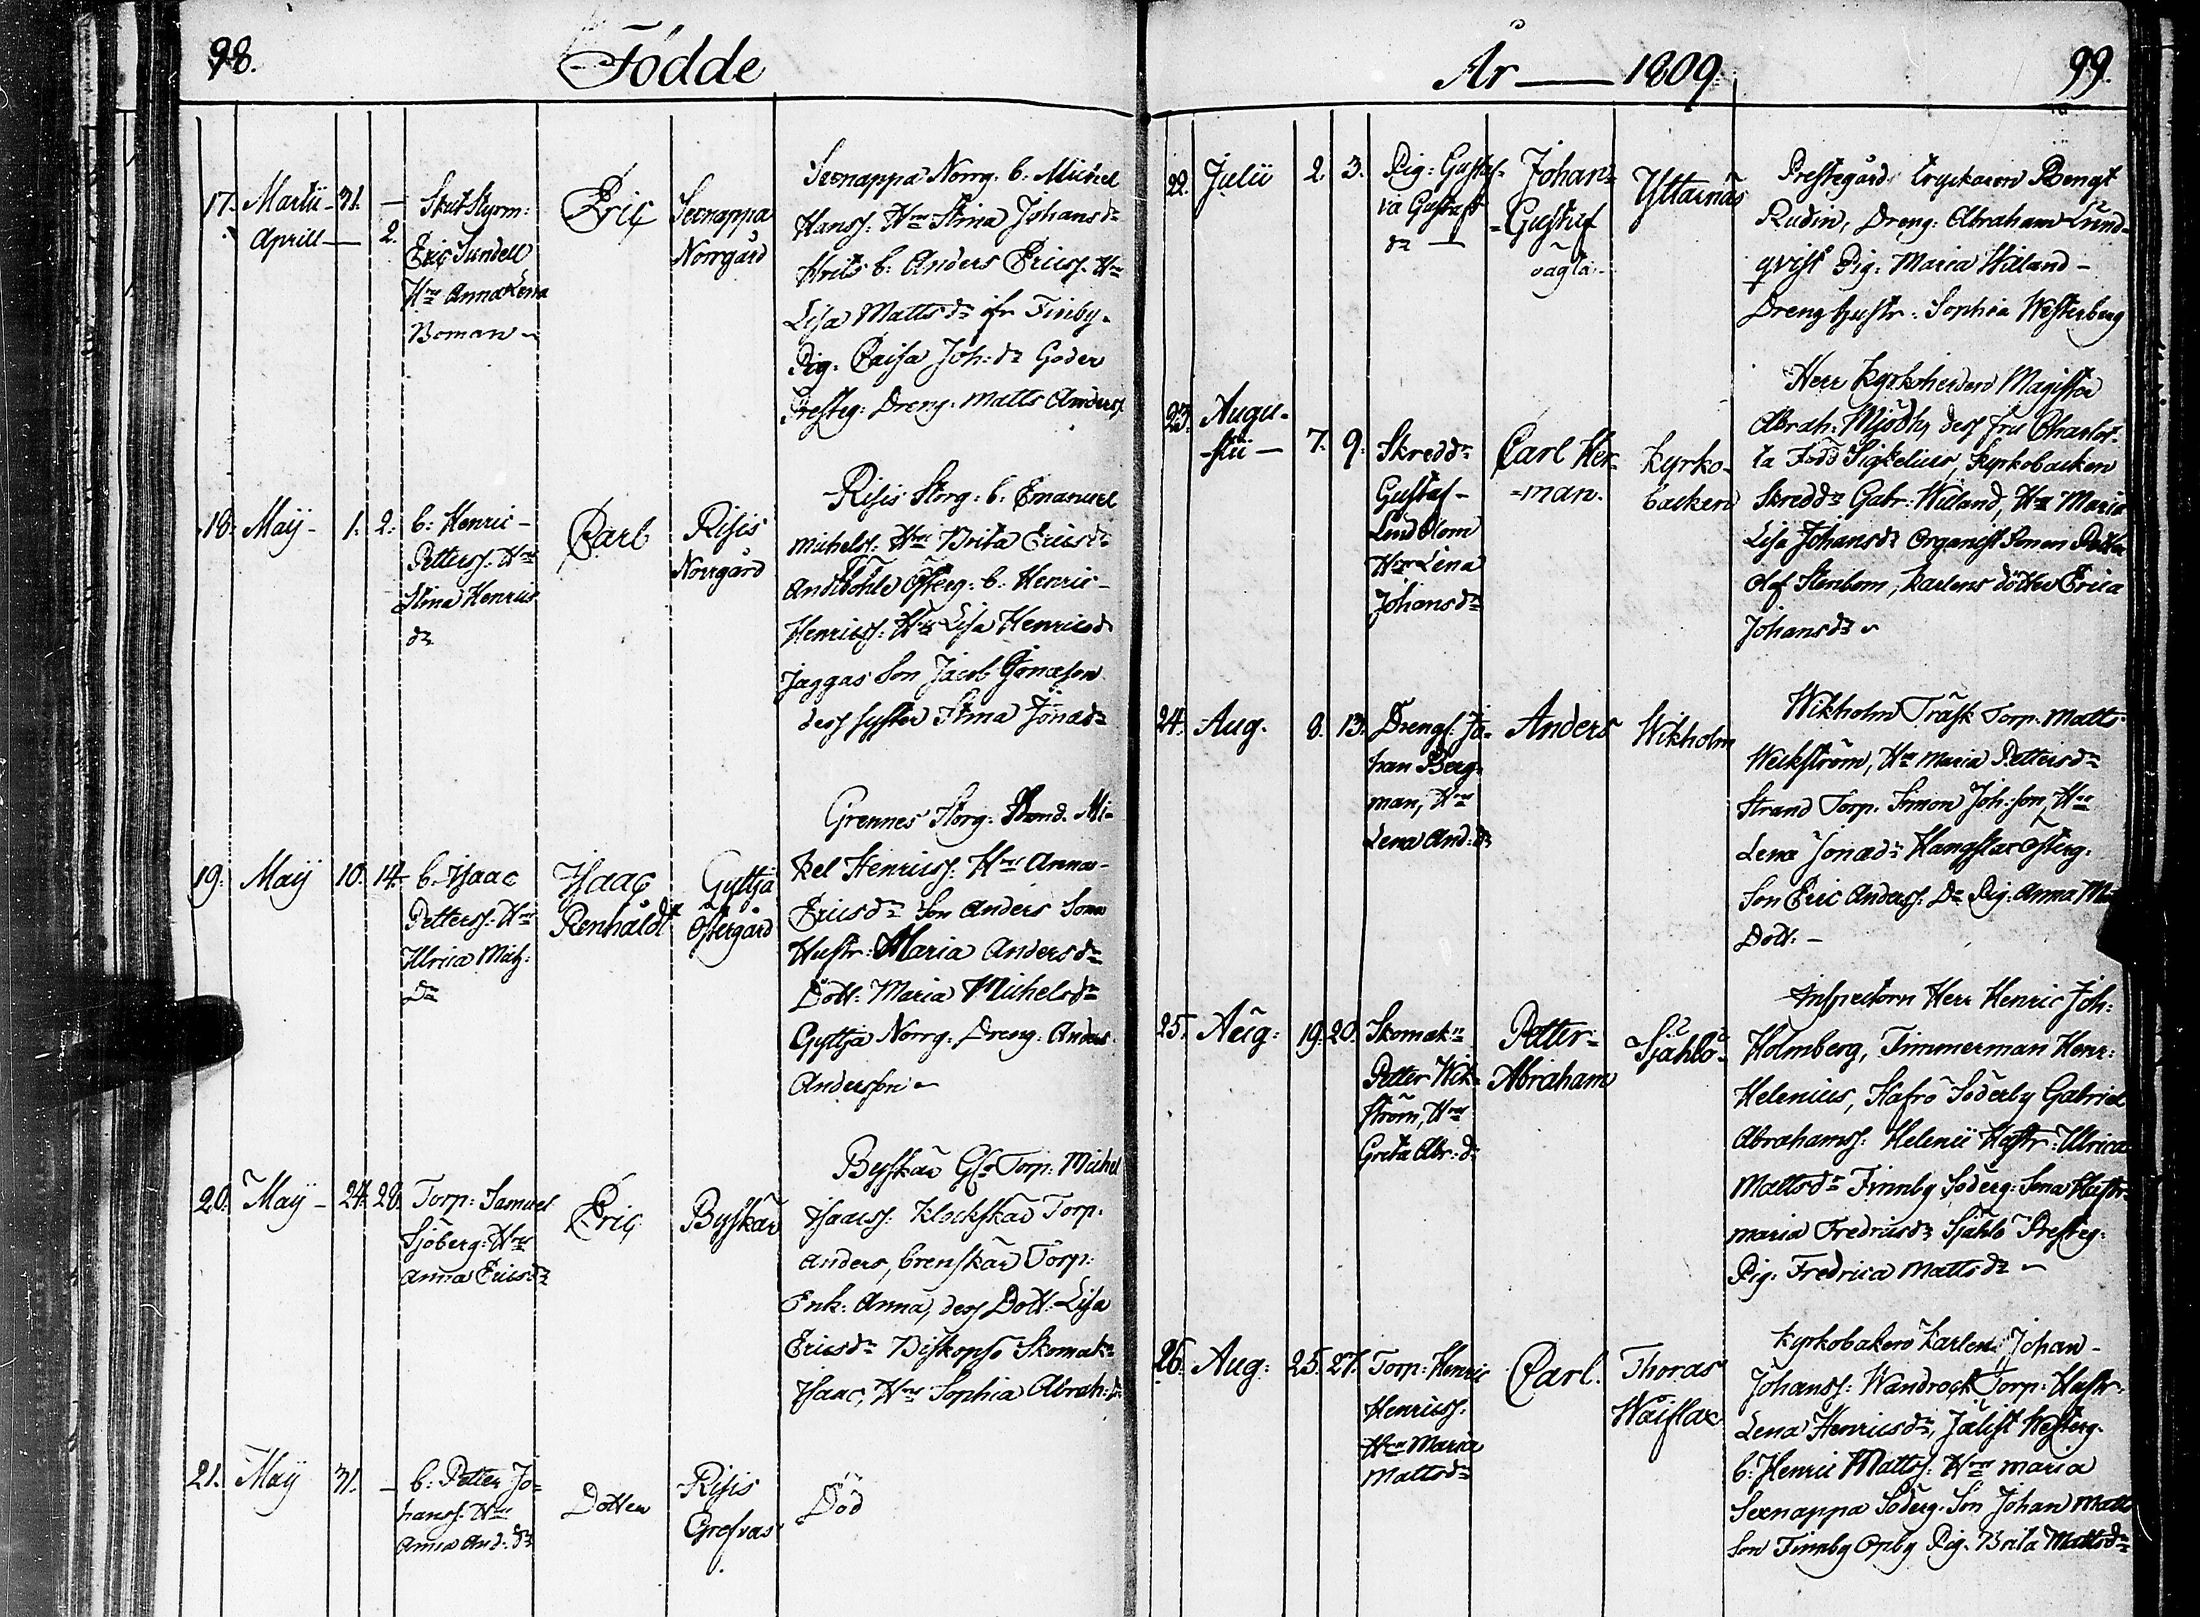 98.
Födde
17. Martii 31. —
Aprill — 2.
Skut Styrm:
Eric Sundell
Hru Anna Lena
Boman
Eric
Sernappa
Norrgård
Sernappa Norrg. b. Michel
Hanss. Hru Stina Johansdr
b: Anders Ericss. Hru
Lisa Mattsdr ifr Finby
Pig. Caisa Joh:dr
Presteg: Dreng. Matts Anderss.
18. Maij 1. 2.
b: Henric
Petterss. Hru
Stina Henrics
dr
Carl
Risis
Norrgård
Risis Storg: b: Emanuel
Michelss: Hru Brita Ericsdr
Österg: b: Henric
Henricss: Hru Lisa Henricsdr
Jaggas Son Jacob Jonasson
dess syster Stina Jonædr
19. Maij 10. 14.
b. Isaac
Petterss. Hru
Ulrica Mich:
Dr
Isaac
Renhåldt
Gyltjä
Östergård
Grennes Storg: Mi-
kel Henricss. Hru Anna
Ericsdr Son Anders Sona
Hustr: Maria Andersdr
Dott: Maria Michelsdr
Gyltjä Norrg. Dreng. Anders
Andersson
20. Maij 24. 28.
Torp: Samuel
Sjöberg: Hru
Anna Ericsdr
Eric
Byskär
Byskär Torp: Michel
Isaacss. Klockskär Torp.
Anders, brenskär Torp:
Enk: Anna, dess Dott: Lisa
Ericsdr Biskopsö Skomak:
Isaac, Hru Sophia Abrah:dr
21. Maij 31. —
b: Petter Jo-
hanss. Hru
Anna And:dr
Dotter
Risis
Grefvas
Död
År — 1809.
99.
22. Julii 2. 3.
Pig: Gusta-
va Gustafs
dr —
Johan
Gustaf
oägta
Yttarnäs
Prestegård. Bengt
Rudin, Dreng: Abraham Lind-
qvist Pig: Maria Wiland
Dreng hustr: Sophia Westerberg
23. Augu-
stii — 7. 9.
Skreddr
Gustaf
Lindblom
Hru Lena
Johansdr
Carl Her-
man.
Kyrko-
backen
Herr Kyrkoherden Magister
Abrah: dess fru Charlot-
ta Född Sigfelius, Kyrkobacken
Skreddr Gabr: Wiland, Hru Maria
Lisa Johansdr Organist Sonen Petter
Olof Stenbom, Karlens dotter Erica
Johansdr
24. Aug. 8. 13.
Drengs. Jo-
han Berg-
man, Hru
Lena And:dr
Anders
Wikholm
Wikholm Träsk Torp. Matts
Weckström, Hru Maria Pettersdr
Strand Torp. Simon Joh:son, Hru
Lena Jonædr Hangslax Österg.
Son Eric Anderss. Dr Pig: Anna
Dott.
25. Aug: 19. 20.
Skomak:
Petter Wik-
ström, Hru
Greta Abr:dr
Petter
Abraham
Själö
Inspectorn Herr Henric Joh:
Holmberg, Timmerman Henr:
Helenius, Hafrö Söderby Gabriel
Abrahamss: Helenii Hustr: Ulrica
Mattsdr Finnby Söderg: Sona Hustr
Maria Fredricsdr Själö Presteg:
Pig: Fredrica Mattsdr
26. Aug: 25. 27.
Torp: Henric
Henricss:
Hru Maria
Mattsdr
Carl.
Thoras
Waislax
Kyrkobakens Karlen Johan
Johanss: Wandrock Torp: Hustr.
Lena Henricsdr, Jälist Westerg.
b: Henric Mattss: Hru Maria
Sernappa Söderg. Son Johan Matts
son Finnby Opby Pig. Brita Mattsdr